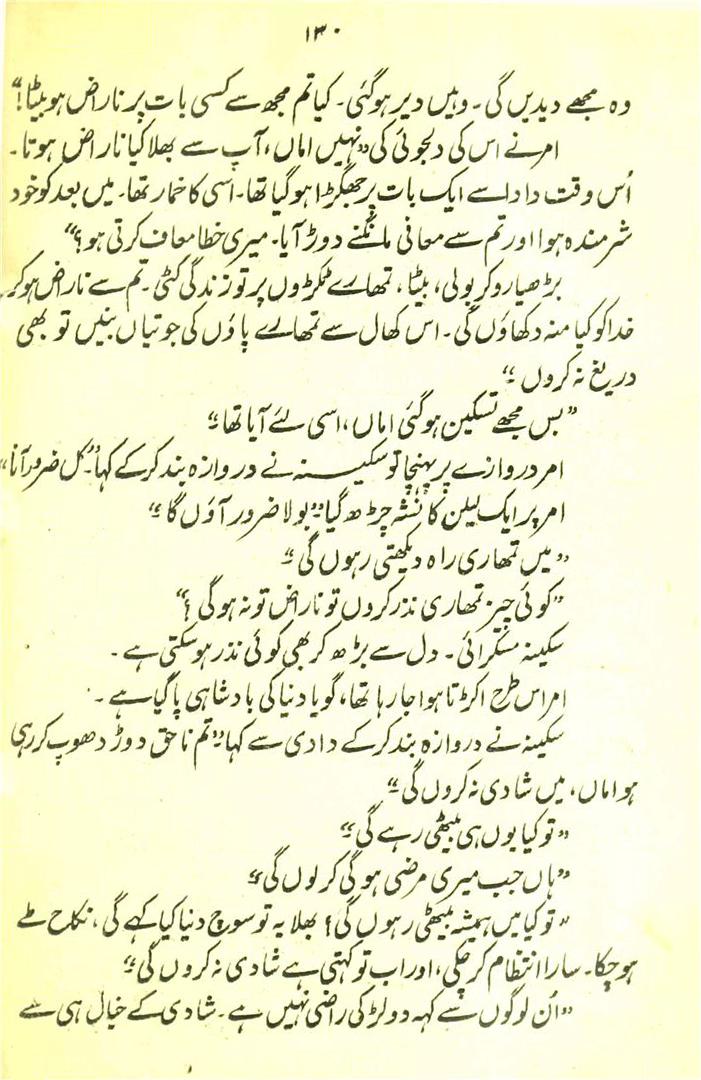 ۱۳۰
وہ مجھے دیدیں گی۔ وہیں دیر ہوگئی۔ کیا تم مجھ سے کسی بات پر ناراض ہو بیٹا!“
امر نے اس کی دلجوئی کی ”نہیں اماں، آپ سے بھلا کیا ناراض ہوتا۔
اُس وقت دادا سے ایک بات پر جھگڑا ہوگیا تھا۔ اسی کا خمار تھا۔ میں بعد کو خود
شرمندہ ہوا اور تم سے معافی مانگنے دوڑ آیا۔ میری خطا معاف کرتی ہو؟“
بڑھیا رو کر بولی، بیٹا، تمھارے ٹکڑوں پر تو زندگی کٹی۔ تم سے ناراض ہوکر
خدا کو کیا منہ دکھاؤں گی۔ اس کھال سے تمھارے پاؤں کی جوتیاں بنیں تو بھی
دریغ نہ کروں“
”بس مجھے تسکین ہوگئی اماں، اسی لئے آیا تھا“
امر دروازے پر پہنچا تو سکینہ نے دروازہ بند کرکے کہا ”کل ضرور آنا“
امر پر ایک گیلن کا نشہ چڑھ گیا ”بولا ضرور آؤں گا“
”میں تمھاری راہ دیکھتی رہوں گی“
”کوئی چیز تمھاری نذر کروں تو ناراض تو نہ ہوگی؟“
سکینہ مسکرائی۔ دل سے بڑھ کر بھی کوئی نذر ہوسکتی ہے۔
امر اس طرح اکڑتا ہوا جا رہا تھا، گویا دنیا کی بادشاہی پا گیا ہے۔
سکینہ نے دروازہ بند کرکے دادی سے کہا ”تم ناحق دوڑ دھوپ کر رہی
ہو اماں، میں شادی نہ کروں گی“
”تو کیا یوں ہی بیٹھی رہے گی“
”ہاں جب میری مرضی ہوگی کر لوں گی“
”تو کیا میں ہمیشہ بیٹھی رہوں گی؟ بھلا یہ تو سوچ دنیا کیا کہے گی، نکاح طے
ہوچکا۔ سارا انتظام کر چکی، اور اب تو کہتی ہے شادی نہ کروں گی“
”اُن لوگوں سے کہہ دو لڑکی راضی نہیں ہے۔ شادی کے خیال ہی سے